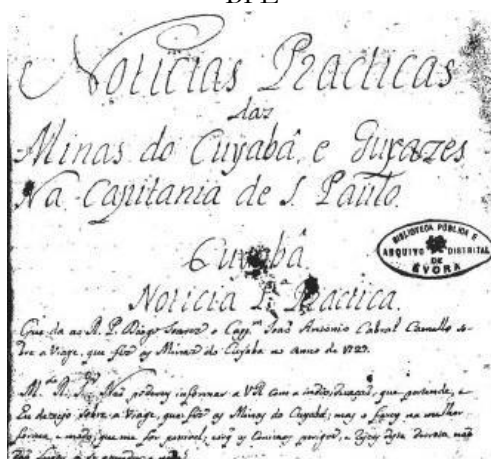 BPE
Noticias Practicas
das
Minas do Cuyabâ, e Guyazes
Na Capitania de S. Paulo.
Cuyabâ.
BIBLIOTECA PÚBLICA E
ARQUIVO DISTRITAL
DE
ÉVORA
Noticia 1.ª Practica.
Que da ao R. P. Diogo Soares o Capp.m João Antonio Cabral Camello so-
bre a Viage, que fez as Minas do Cuyaba no anno de 1727.
Não poderey informar a V. com a individuação, que pertende, e
Eu dezejo sobre a Viage, que fiz as Minas do Cuyabá; mas o farey na melhor
forma, e modo, que me for possivel;